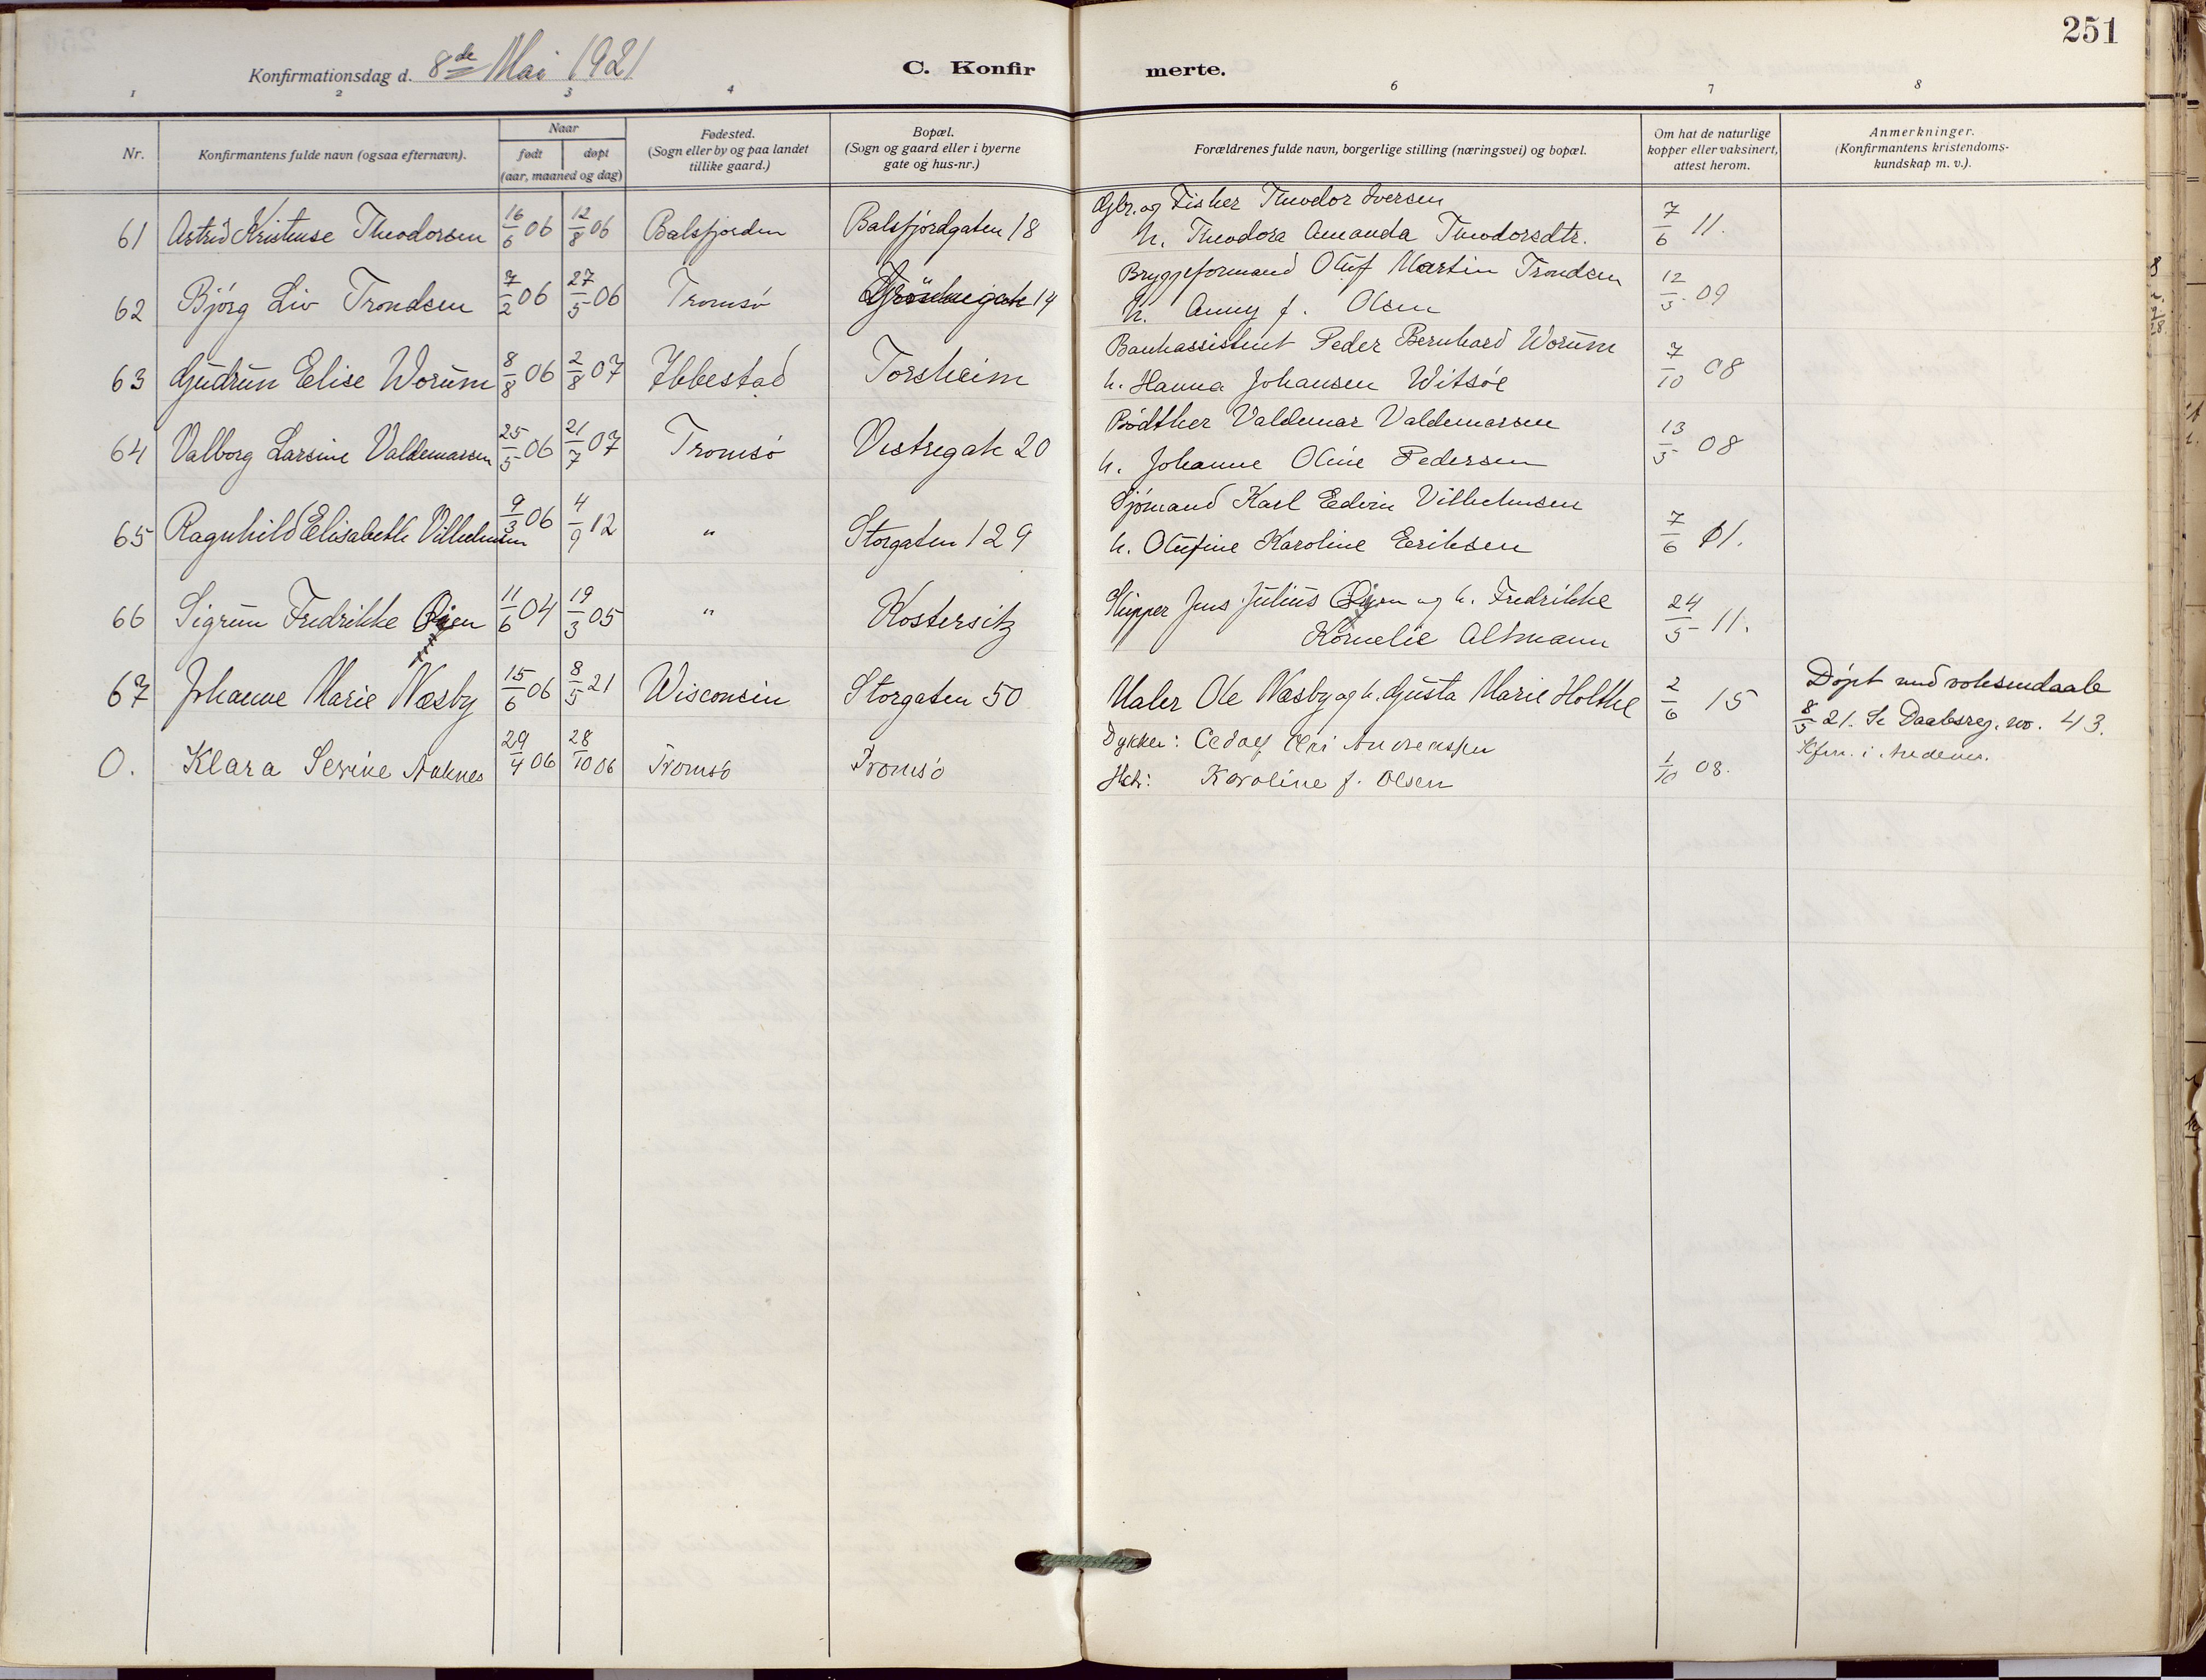 251
Konfirmationsdag d. 8de Mai 1921
C. Konfir merte.
1 2 3 4 6 7 8
Nr.
Konfirmantens fulde navn (ogsaa efternavn).
Naar
født døpt
(aar, maaned og dag)
Fødested.
(Sogn eller by og paa landet
tillike gaard.)
Bopæl.
(Sogn og gaard eller i byerne
gate og hus-nr.)
Forældrenes fulde navn, borgerlige stilling (næringsvei) og bopæl.
Om hat de naturlige
kopper eller vaksinert,
attest herom.
Anmerkninger.
(Konfirmantens kristendoms-
kundskap m. v.).
Gbr. og Fisker Theodor Iversen
61 Astrid Kristense Theodorsen 16/6 06 12/8 06 Balsfjorden Balsfjordgaten 18 h. Theodora Amanda Theodorsdtr. 7/6 11.
Bryggeformand Oluf Martin Trondsen
62 Bjørg Liv Trondsen 7/2 06 27/5 06 Tromsø 14 h. Anny f. Olsen 12/5 09
Bankassistent Peder Bernhard Worum
63 Gudrun Elise Worum 8/8 06 2/8 07 Ibbestad Torsheim h. Hanna Johansen Witsøe 7/10 08
Bødtker Valdemar Valdemarsen
64 Valborg Larsine Valdemarsen 25/5 06 21/7 07 Tromsø Vestregate 20 h. Johanne Oline Pedersen 13/5 08
Sjømand Karl Edvin Vilhelmsen
65 Ragnhild Elisabeth Vilhelmsen 9/3 06 4/9 12 " Storgaten 129 h. Olufine Karoline Eriksen 7/6 11.
Skipper Jens Julius Øien og h. Fredrikke
66 Sigrun Fredrikke Øien 11/6 04 19/3 05 " Kostersitz Kornelie Altmann 24/5 11.
67 Johanne Marie Næsby 15/6 06 8/5 21 Wisconsin Storgaten 50 Maler Ole Næsby og h. Gusta Marie Holthe 2/6 15 Døpt med voksendaab
8/5 21. Se Daabsreg. no. 43.
Dykker:
O. Klara Serine Aaknes 29/4 06 28/10 06 Tromsø Tromsø Hstr: Karoline f. Olsen 1/10 08. Kfm. i Andenes.